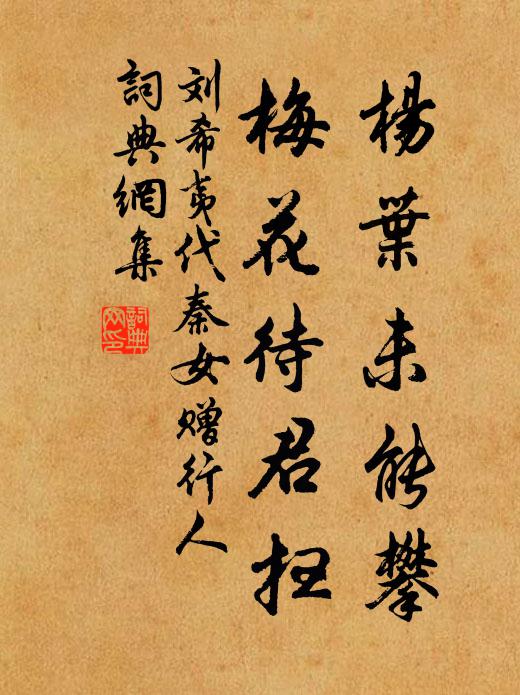 楊葉未能攀
梅花待君
刘希夷代秦女赠行人
詞典網集
詞典网印